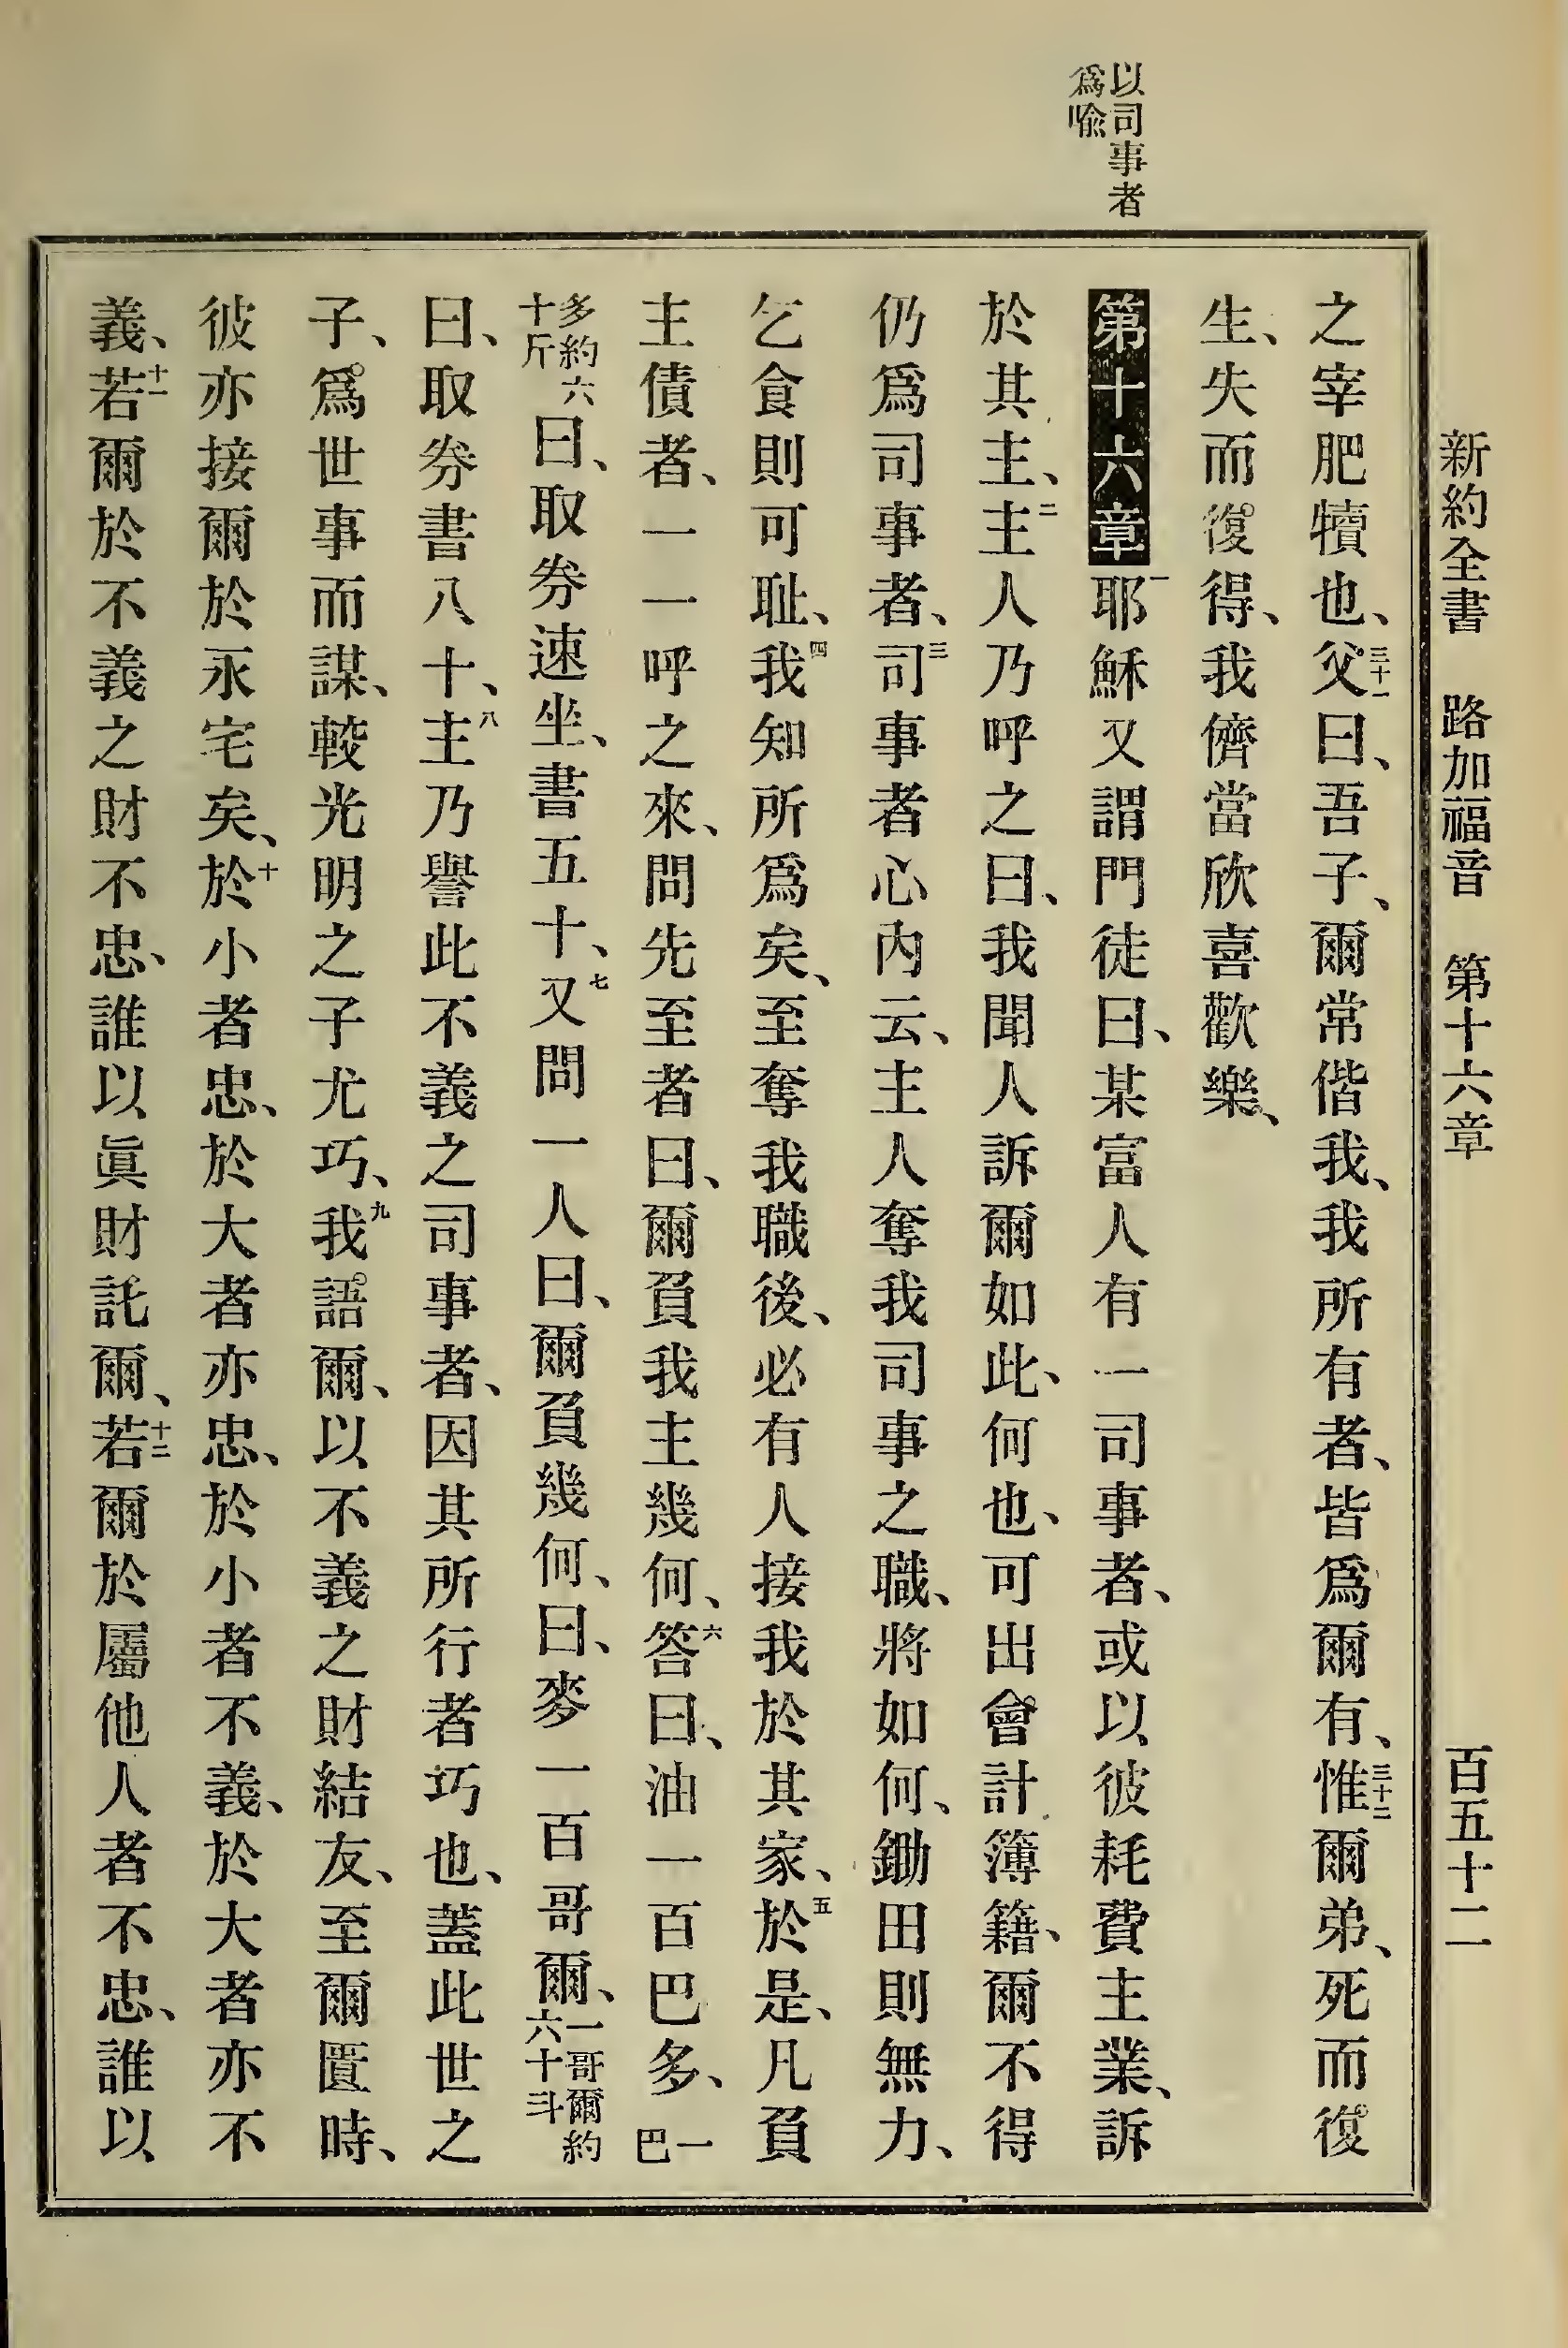 新約全書 路加福音 第十六章 百五十二
以司事者
爲喻
之宰肥犢也、三十一父曰、吾子、爾常偕我、我所有者、皆爲爾有、三十二惟爾弟、死而復
生、失而復得、我儕當欣喜歡樂、
第十六章一耶穌又謂門徒曰、某富人有一司事者、或以彼耗費主業、訴
於其主、二主人乃呼之曰、我聞人訴爾如此、何也、可出會計簿籍、爾不得
仍爲司事者、三司事者心內云、主人奪我司事之職、將如何、鋤田則無力、
乞食則可耻、四我知所爲矣、至奪我職後、必有人接我於其家、五於是、凡負
主債者、一一呼之來、問先至者曰、爾負我主幾何、六答曰、油一百巴多、一巴
多約六十斤曰、取券速坐、書五十、七又問一人曰、爾負幾何、曰、麥一百哥爾、一哥爾約六十斗
曰、取券書八十、八主乃譽此不義之司事者、因其所行者巧也、蓋此世之
子、爲世事而謀、較光明之子尤巧、九我語爾、以不義之財結友、至爾匱時、
彼亦接爾於永宅矣、十於小者忠、於大者亦忠、於小者不義、於大者亦不
義、十一若爾於不義之財不忠、誰以眞財託爾、十二若爾於屬他人者不忠、誰以